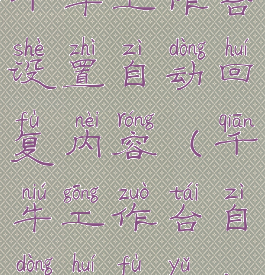 牛工作台
shè zhì zì dòng huí
设置自动回
fù nèi róng qiān
复内容（千
niú gōng zuò tái zì
牛工作台自
dòng huí fù yǔ